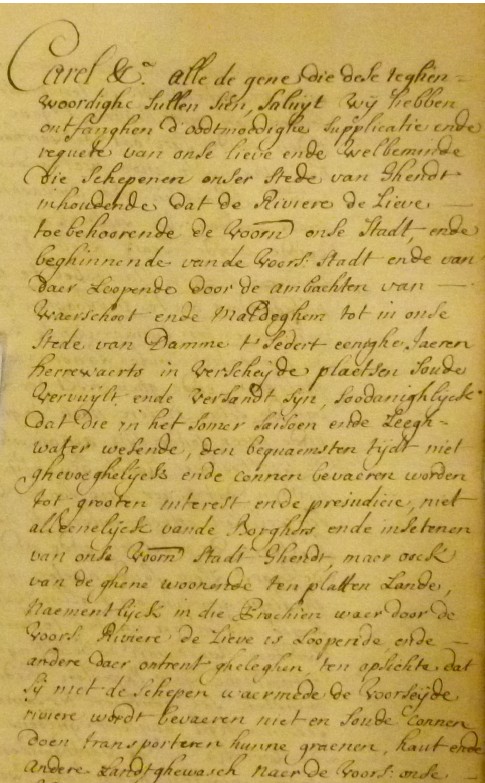 Carel &a. alle de gene die dese teghen=
woordighe sullen siên, saluijt wij hebben
ontfanghen d'oodtmoedighe supplicatie ende
requete van onse lieve ende welbeminde
die schepenen onser stede van Ghendt
inhoudende dat de Riviere de Lieve
toebehoorende de Voorn onse Stadt, ende
beghinnende vande Voors: Stadt ende van
daer Loopende door de ambachten van
Waerschoot ende Maldeghem tot in onse
Stede van Damme t'sedert eenighe Jaeren
herrewaerts in verscheijde plaetsen soude
vervuijlt ende versandt sijn, soodanighlijck
dat die in het somer saisoen ende Leegh=
water wesende, den bequaemsten tijdt niet
ghevoeghelijck ende connen bevaeren worden
tot grooten interest ende prejudicie, niet
alleenelijck vande Borghers ende insetenen
van onse Voorn Stadt Ghendt, maer oock
van de ghene woonende ten platten Lande,
Naementlijck in die Prochien waer door de
Voors: Riviere de Lieve is Loopende ende
andere daer ontrent gheleghen, ten opsichte dat
sij met de schepen waermede de voorseijde
riviere wordt bevaeren niet en soude connen
doen transporteren hunne graenen, haut ende
andere Landtghewasch naer de Voors: onse